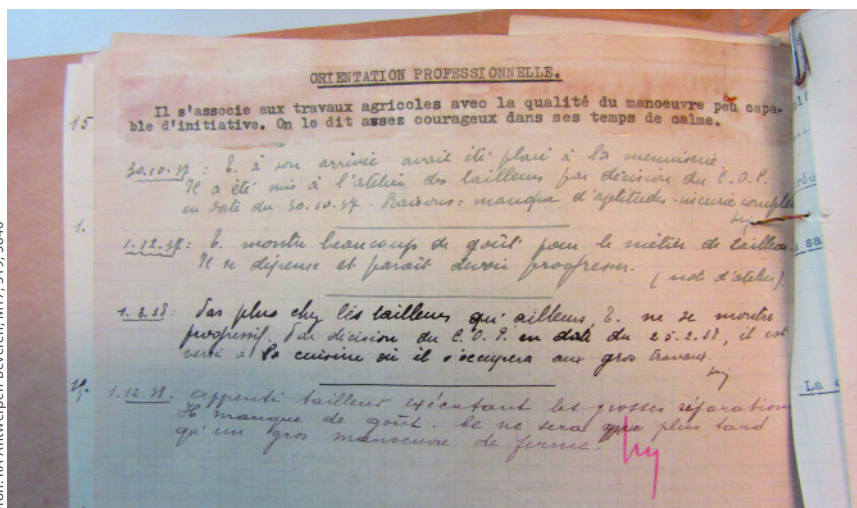 ORIENTATION PROFESSIONNELLE.
15
Il s'associe aux travaux agricoles avec la qualité du manoeuvre peu capa-
ble d'initiative. On le dit assez courageux dans ses temps de calme.
30.10.37 : E. à son arrivée avait été placé à la menuiserie
Il a été mis à l'atelier des tailleurs par décision du C.O.P.
en date du 30.10.37. Raisons : manque d'aptitudes - incurie complète
1.
1.12.37: E. montre beaucoup de goût pour le métier de tailleur.
Il se dépense et paraît devoir progresser.
(note d'atelier)
1.3.38: Pas plus chez les tailleurs qu'ailleurs, E. ne se montre
progressif. Par décision du C.O.P. en date du 25.2.38, il est
versé à la cuisine où il s'occupera aux gros travaux.
1.12.38. apprenti tailleur exécutant les grosses réparations
Il manque de goût. Ce ne sera que plus tard
qu'un gros manoeuvre de ferme.
sa
La